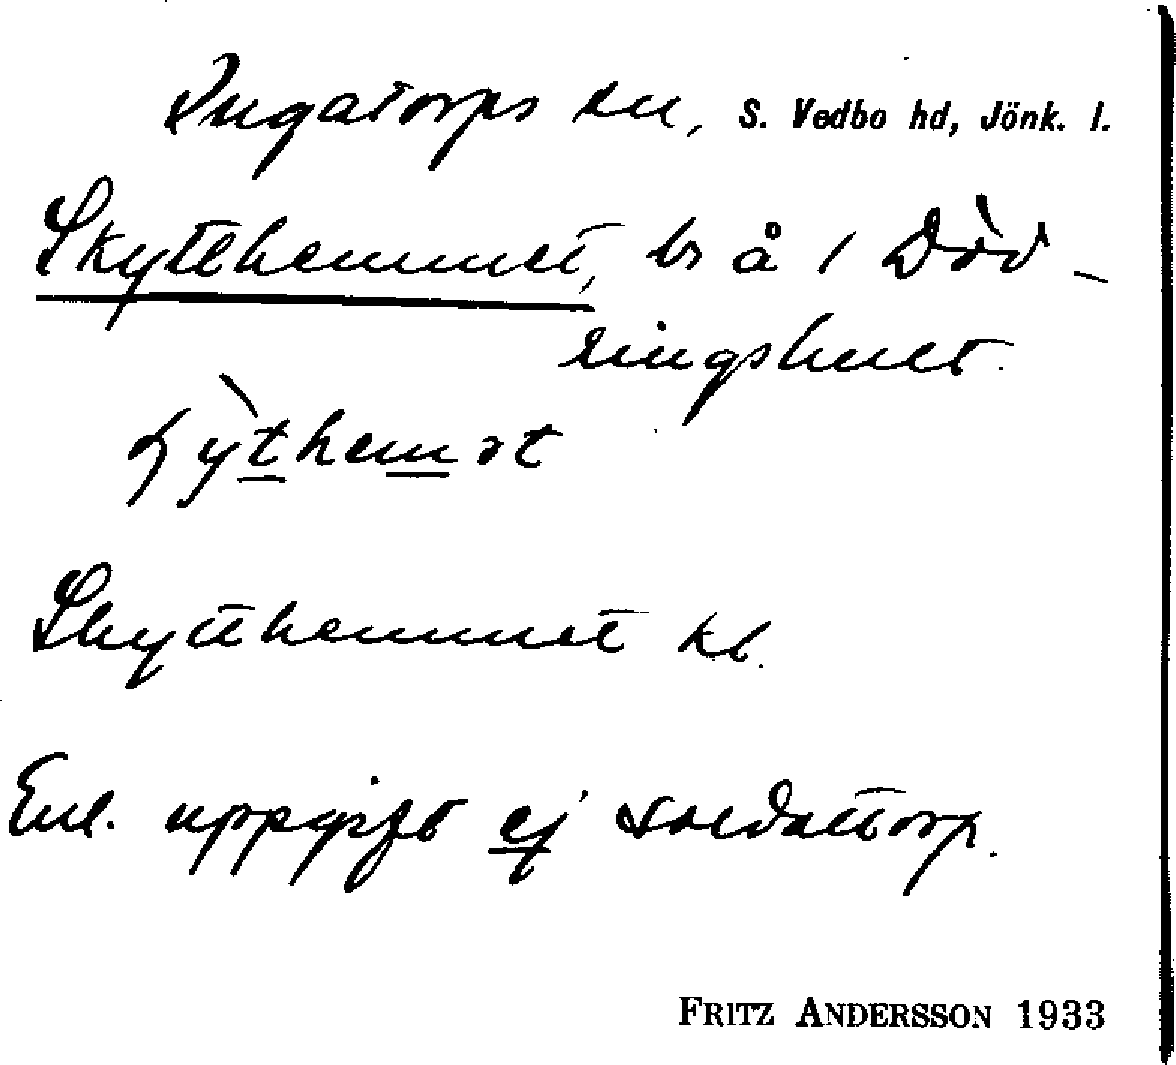 Ingatorps sn, S. Vedbo hd, Jönk. l.
Skyttehemmet, bs å 1 Död-
ringshult.
ʃy̍themət
Skyttehemmet kb.
Enl. uppgift ej soldattorp.
FRITZ ANDERSSON 1933